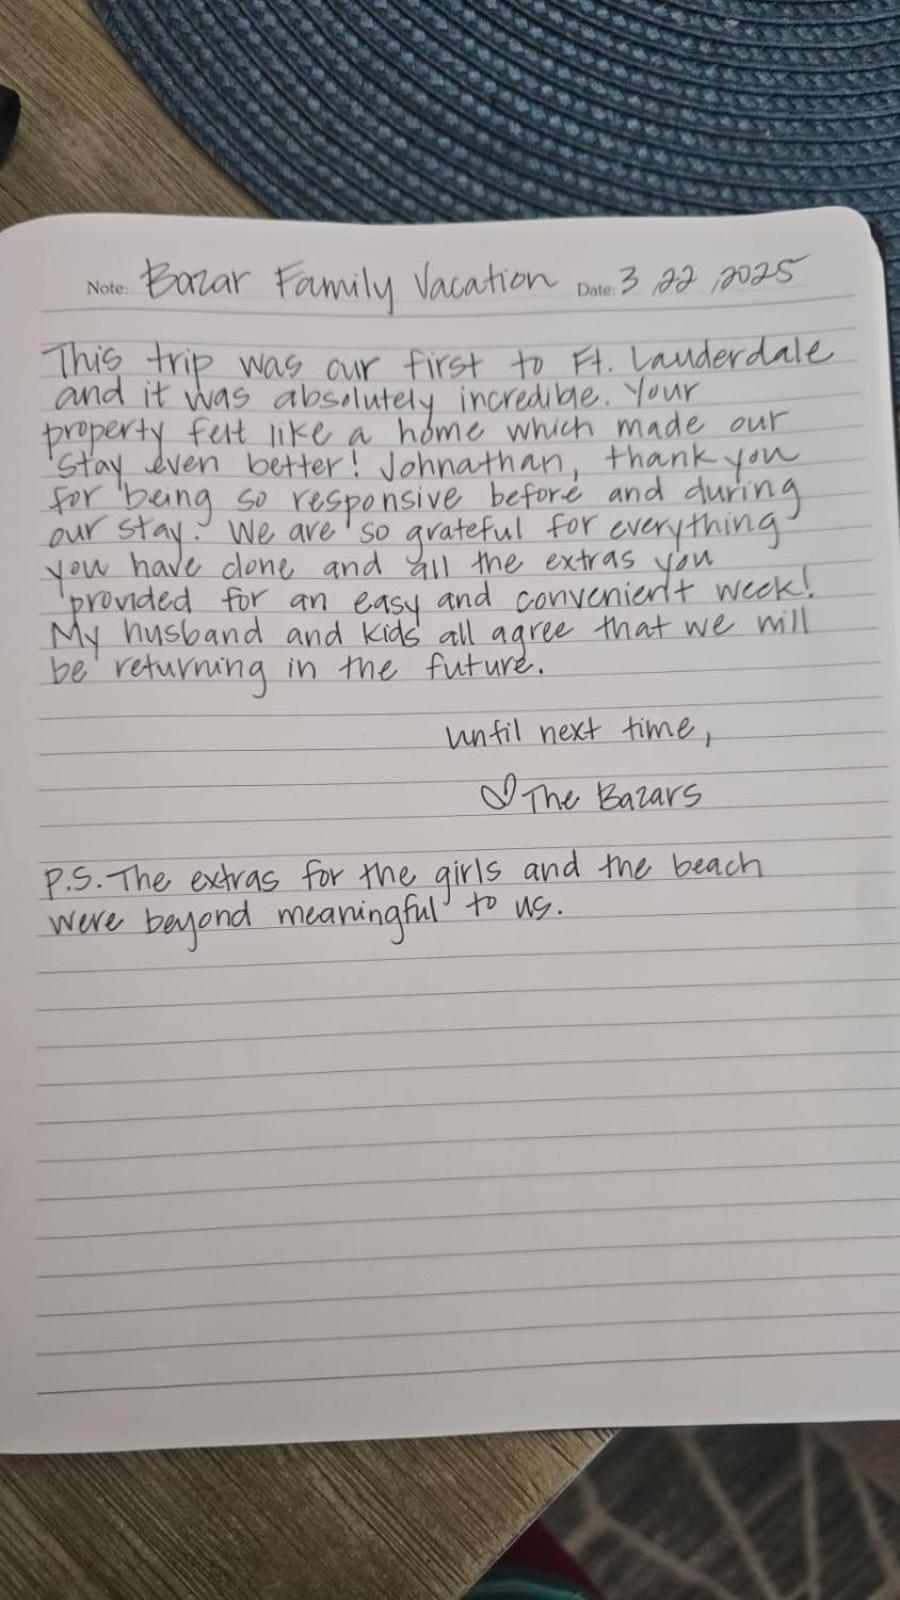 Note: Bazar Family Vacation Date: 3,22,2025
This trip was our first to Ft. Lauderdale
and it was absolutely incredible. Your
property felt like a home which made our
stay even better! Johnathan, thank you
for being so responsive before and during
our stay. We are so grateful for everything
you have done and all the extras you
provided for an easy and convenient week!
My husband and kids all agree that we will
be returning in the future.
until next time,
♡ The Bazars
P.S. The extras for the girls and the beach
were beyond meaningful to us.